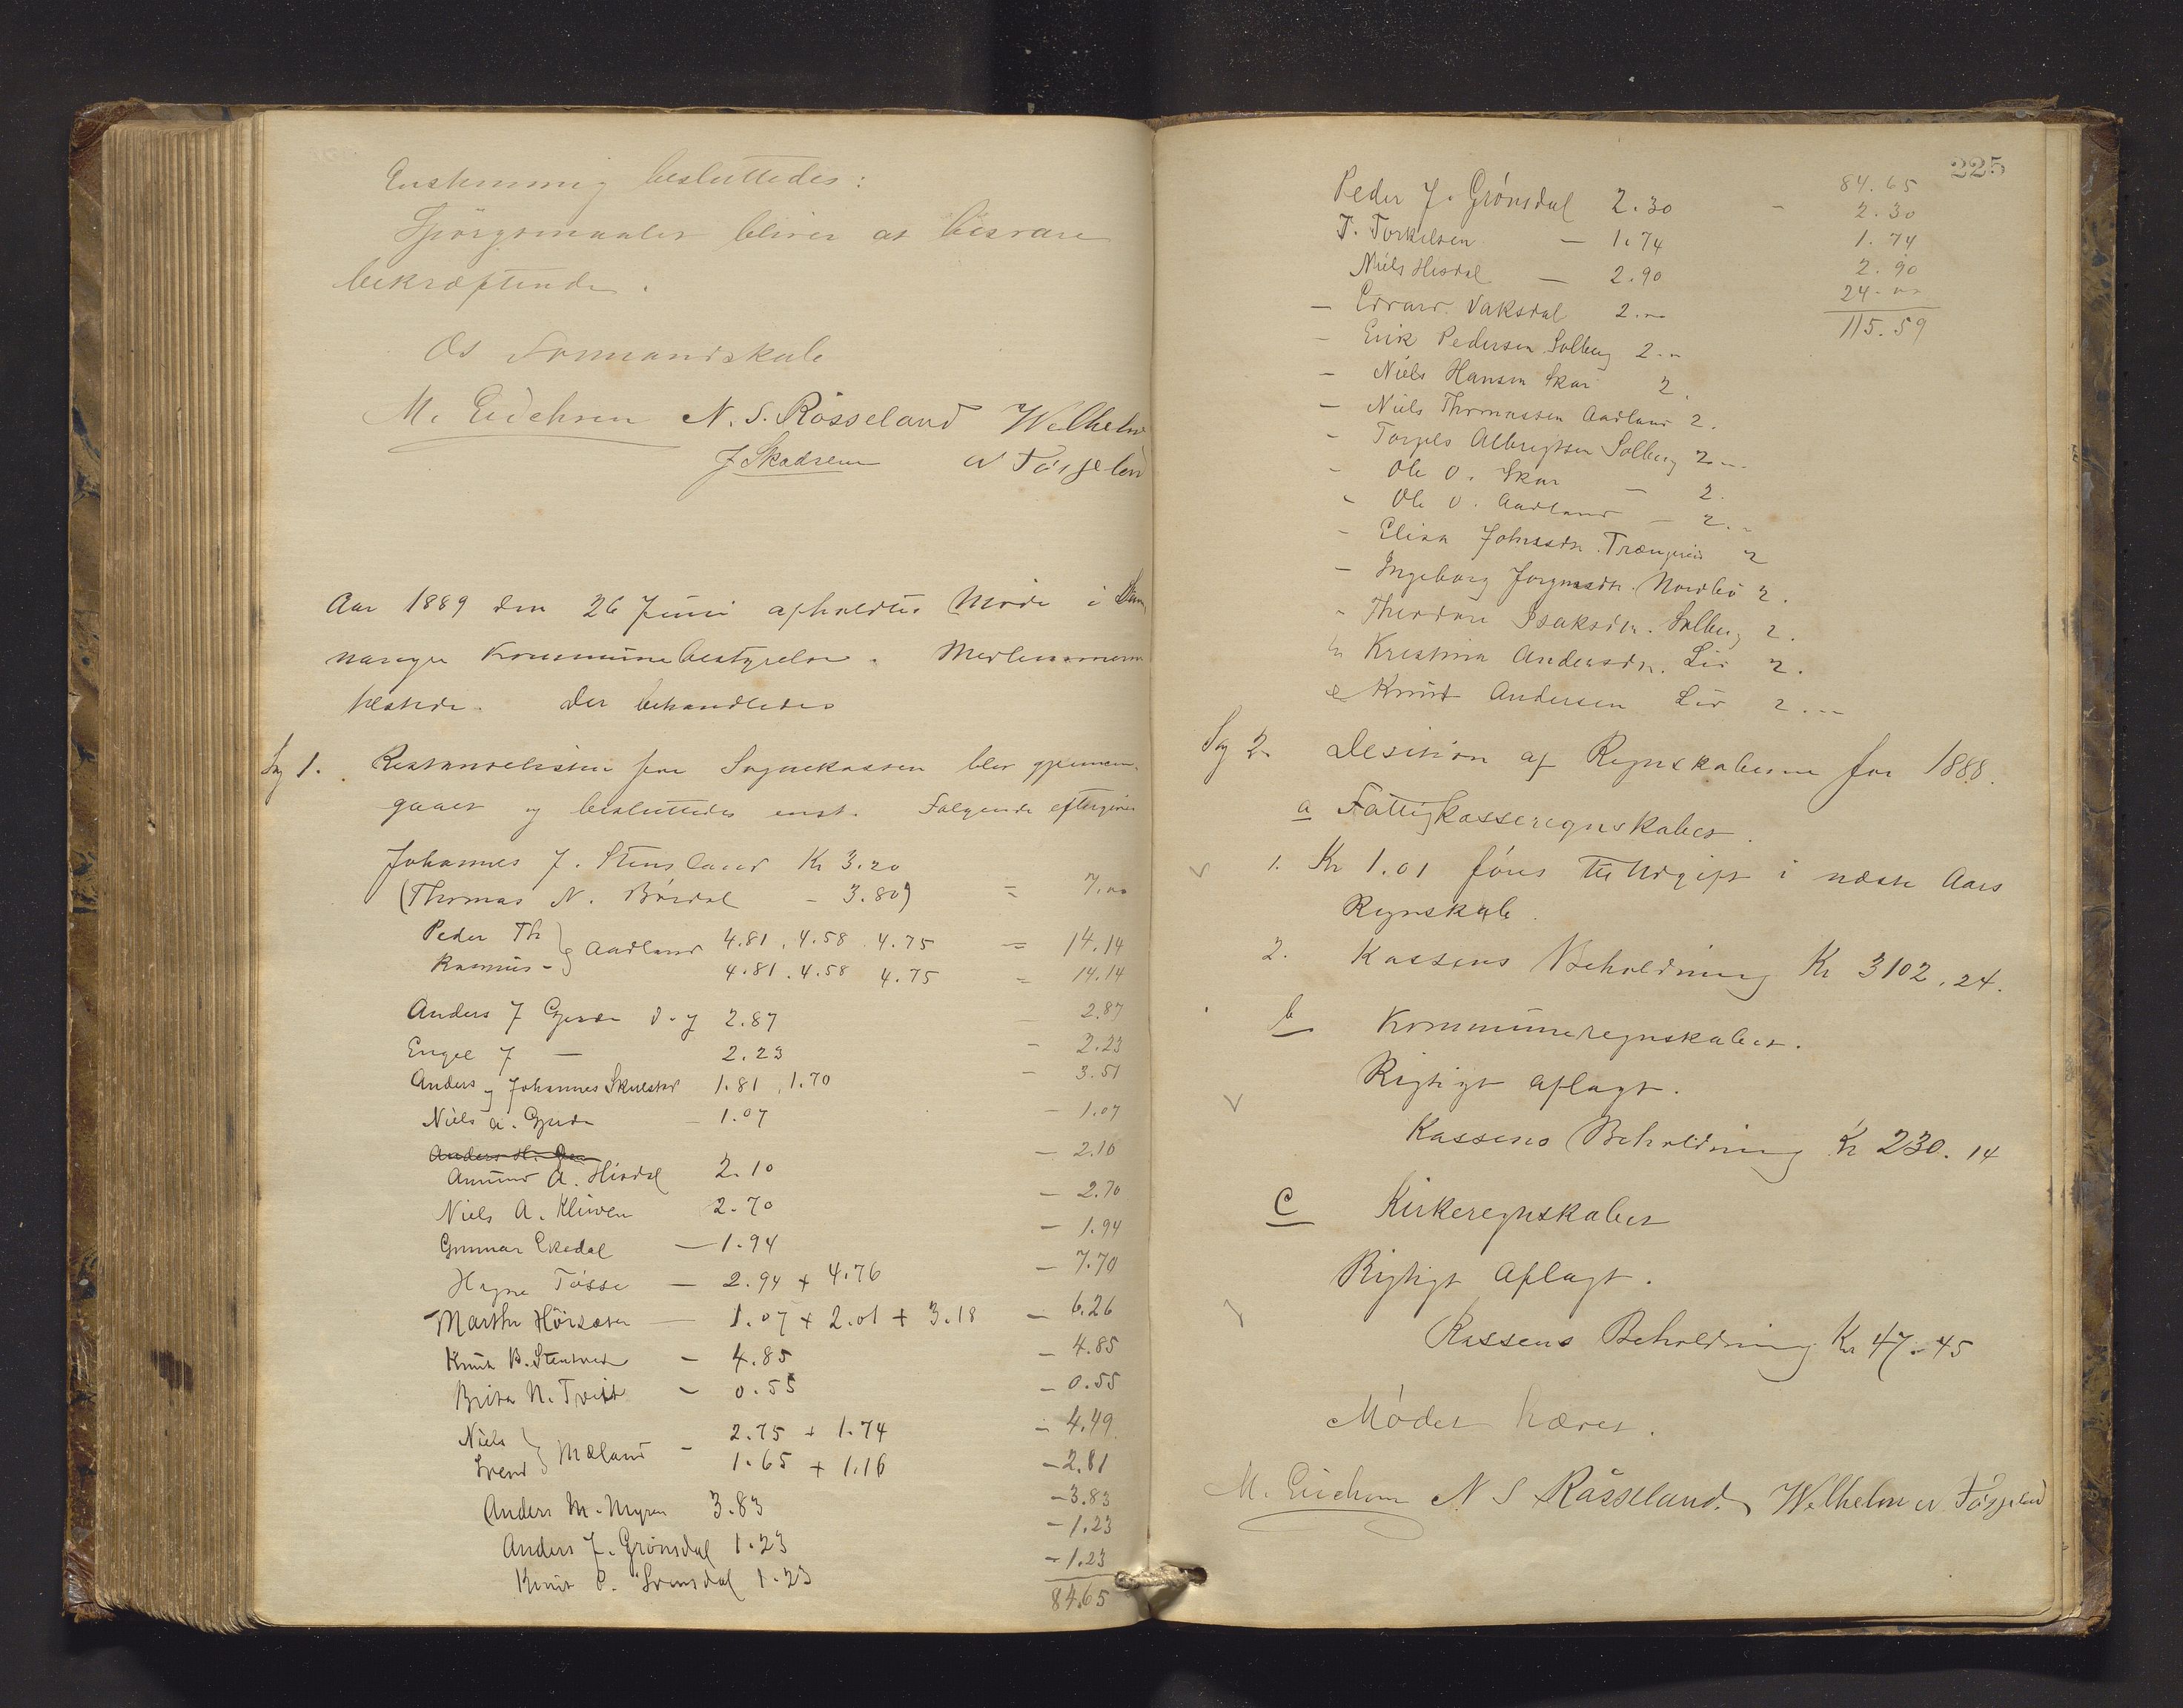 Enstemmig besluttedes:
Spörgsmaalet bliver at besvare
bekræftende.
Os Formandskab
M. Eidehsen N. S. Rösseland Wilhelm
J Skadsem N Tösseland
Aar 1889 den 26 Juni afholdtes Möde i Sam
nanger Kommunebestyrelse. Medlemmerne
tilstede. Der behandledes
Sag 1. Restanselisten for Sognekassen blev gjennem
gaaet og besluttedes enst. Følgende eftergives
Johannes J. Stensland Kr 3.20
(Thomas N. Bördal - 3.80) = 7.00
Peder Th } Aadland 4.81, 4.58. 4.75 = 14.14
Rasmus - 4.81. 4.58 4.75 = 14.14
Anders J Gjerde d. y 2.87 2.87
Engel J — 2.23 - 2.23
Anders og Johannes Skulstad 1.81, 1.70 - 3.51
Niels A. Gjerde - 1.07 - 1.07
Anders H. Gje
Amund A. Hisdal 2.10 - 2.10
Niels A. Kleiven 2.70 - 2.70
Gunnar Ekedal — 1.94 - 1.94
Hagne Tösse — 2.94 + 4.76 - 7.70
Marthe Höisæter — 1.07 + 2.01 + 3.18 - 6.26
Knut B. - 4.85 - 4.85
Brita N. Tveit - 0.55 - 0.55
Niels } Mæland - 2.75 + 1.74 - 4.49
Svend 1.65 + 1.16 - 2.81
Anders M. Myren 3.83 - 3.83
Anders J. Grönsdal 1.23 - 1.23
Knut P. Grönsdal 1.23 - 1.23
84.65
225
84.65
Peder J. Grönsdal 2.30 - 2.30
T. Torkelsen — 1.74 1.74
Niels Hisdal — 2.90 2.90
24.00
- Edvard Vaksdal 2.00
115.59
- Erik Pedersen Solberg 2.-
- Niels Hansen Skar 2.
- Niels Thomassen Aadland 2.
- Torgils Albregtsen Solberg 2.-
- Ole O. Skar - 2.
- Ole O. Aadland - 2.-
- Elisa Johnsdtr. Trængereid 2
- Ingeborg Jorgensdtr. Nordbö 2.
- Theodore Isaksdtr. Solberg 2.
- Kristina Andersdtr. Lid 2.
- Knut Andersen Lid 2.-
Sag 2. Desision af Regnskaberne for 1888.
a Fattigkasseregnskabet.
1. Kr 1.01 föres til Udgift i næste Aars
Regnskab.
2. Kassens Beholdning Kr 3102.24.
b Kommuneregnskabet.
Rigtigt aflagt.
Kassens Beholdning Kr 230.14
c Kirkeregnskabet
Rigtigt aflagt.
Kassens Beholdning Kr 47.45
Mödet hævet.
M. Eidehsen N S Rösseland. Wilhelm N. Tösseland